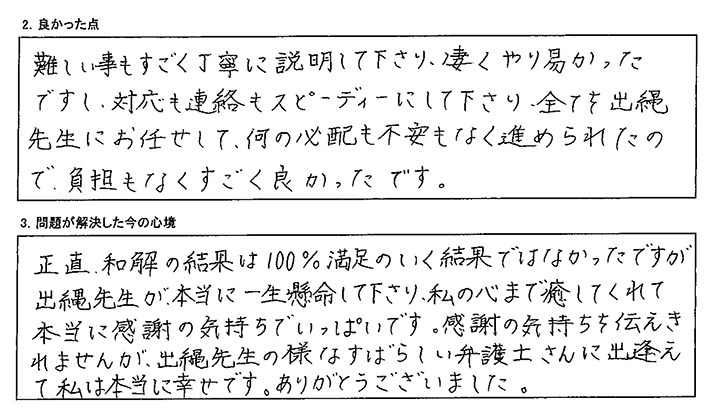 2. 良かった点
難しい事もすごく丁寧に説明して下さり、凄くやり易かった
ですし、対応も連絡もスピーディーにして下さり、全てを出縄
先生にお任せして、何の心配も不安もなく進められたの
で、負担もなくすごく良かったです。
3. 問題が解決した今の心境
正直、和解の結果は100%満足のいく結果ではなかったですが
出縄先生が、本当に一生懸命して下さり、私の心まで癒してくれて
本当に感謝の気持ちでいっぱいです。感謝の気持ちを伝えき
れませんが、出縄先生の様なすばらしい弁護士さんに出逢え
て私は本当に幸せです。ありがとうございました。